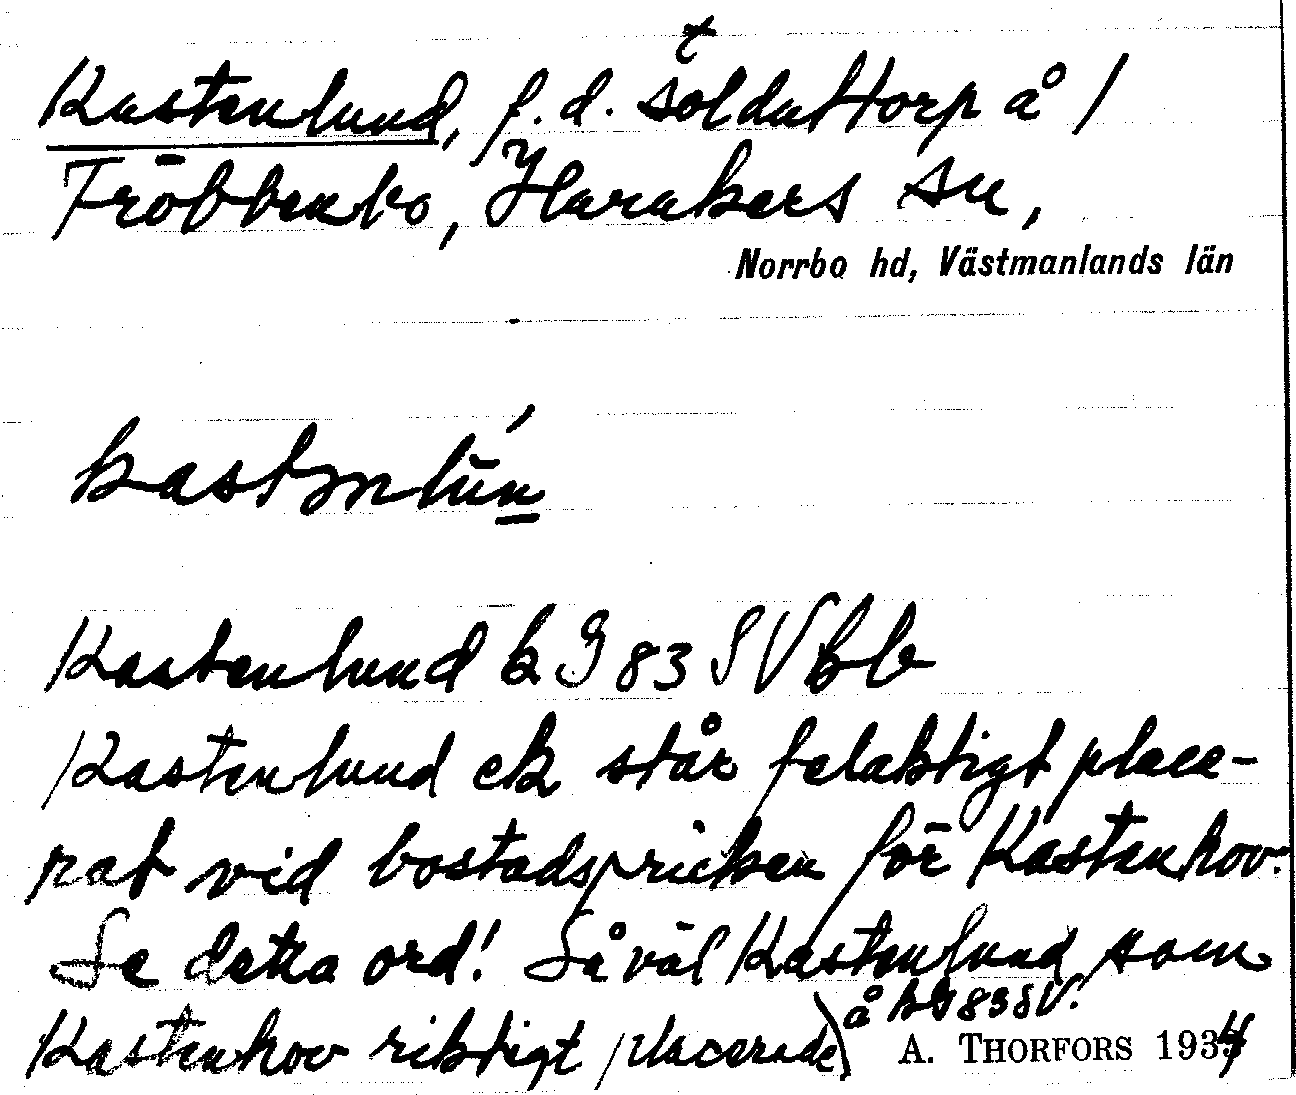 Kastenlund, f.d. soldattorp å /
Fröbbenbo, Harakers sn,
Norrbo hd, Västmanlands län
kastənlūn
Kastenlund k G 83 SV bb
Kastenlund ek står felaktigt place-
rat vid bostadspricken för Kastenhov.
Se detta ord! Såväl Kastenlund som
Kastenhov riktigt placerade) å kG83SV.
A. THORFORS 1934